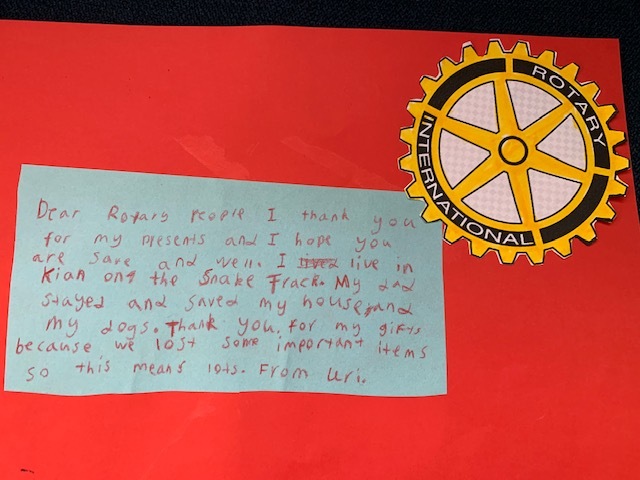 ROTARY
INTERNATIONAL
Dear Rotary people I thank you
for my presents and I hope you
are save and well. I live in
Kiah on the Snake Track. My dad
stayed and saved my house and
my dogs. Thank you, for my gifts
because we lost some important items
so this means lots. From Uri.